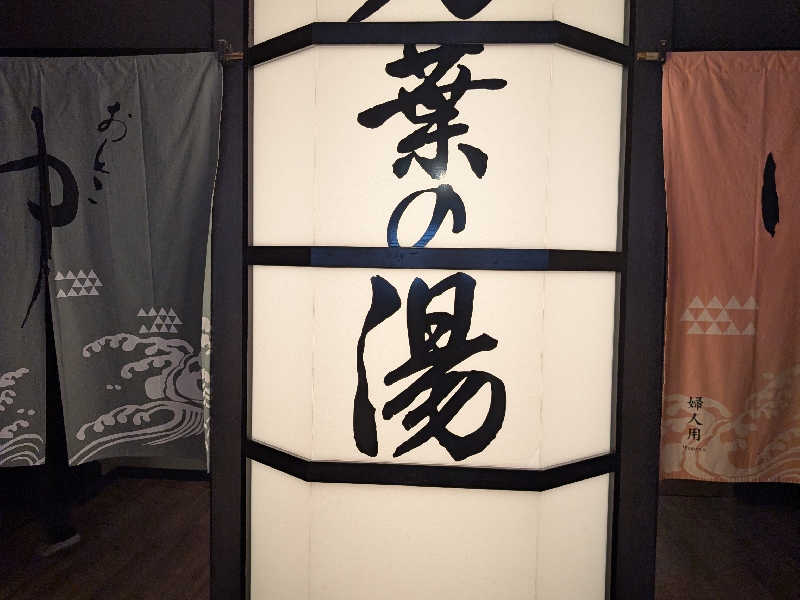 葉の湯
おとこ
ゆ
婦人用